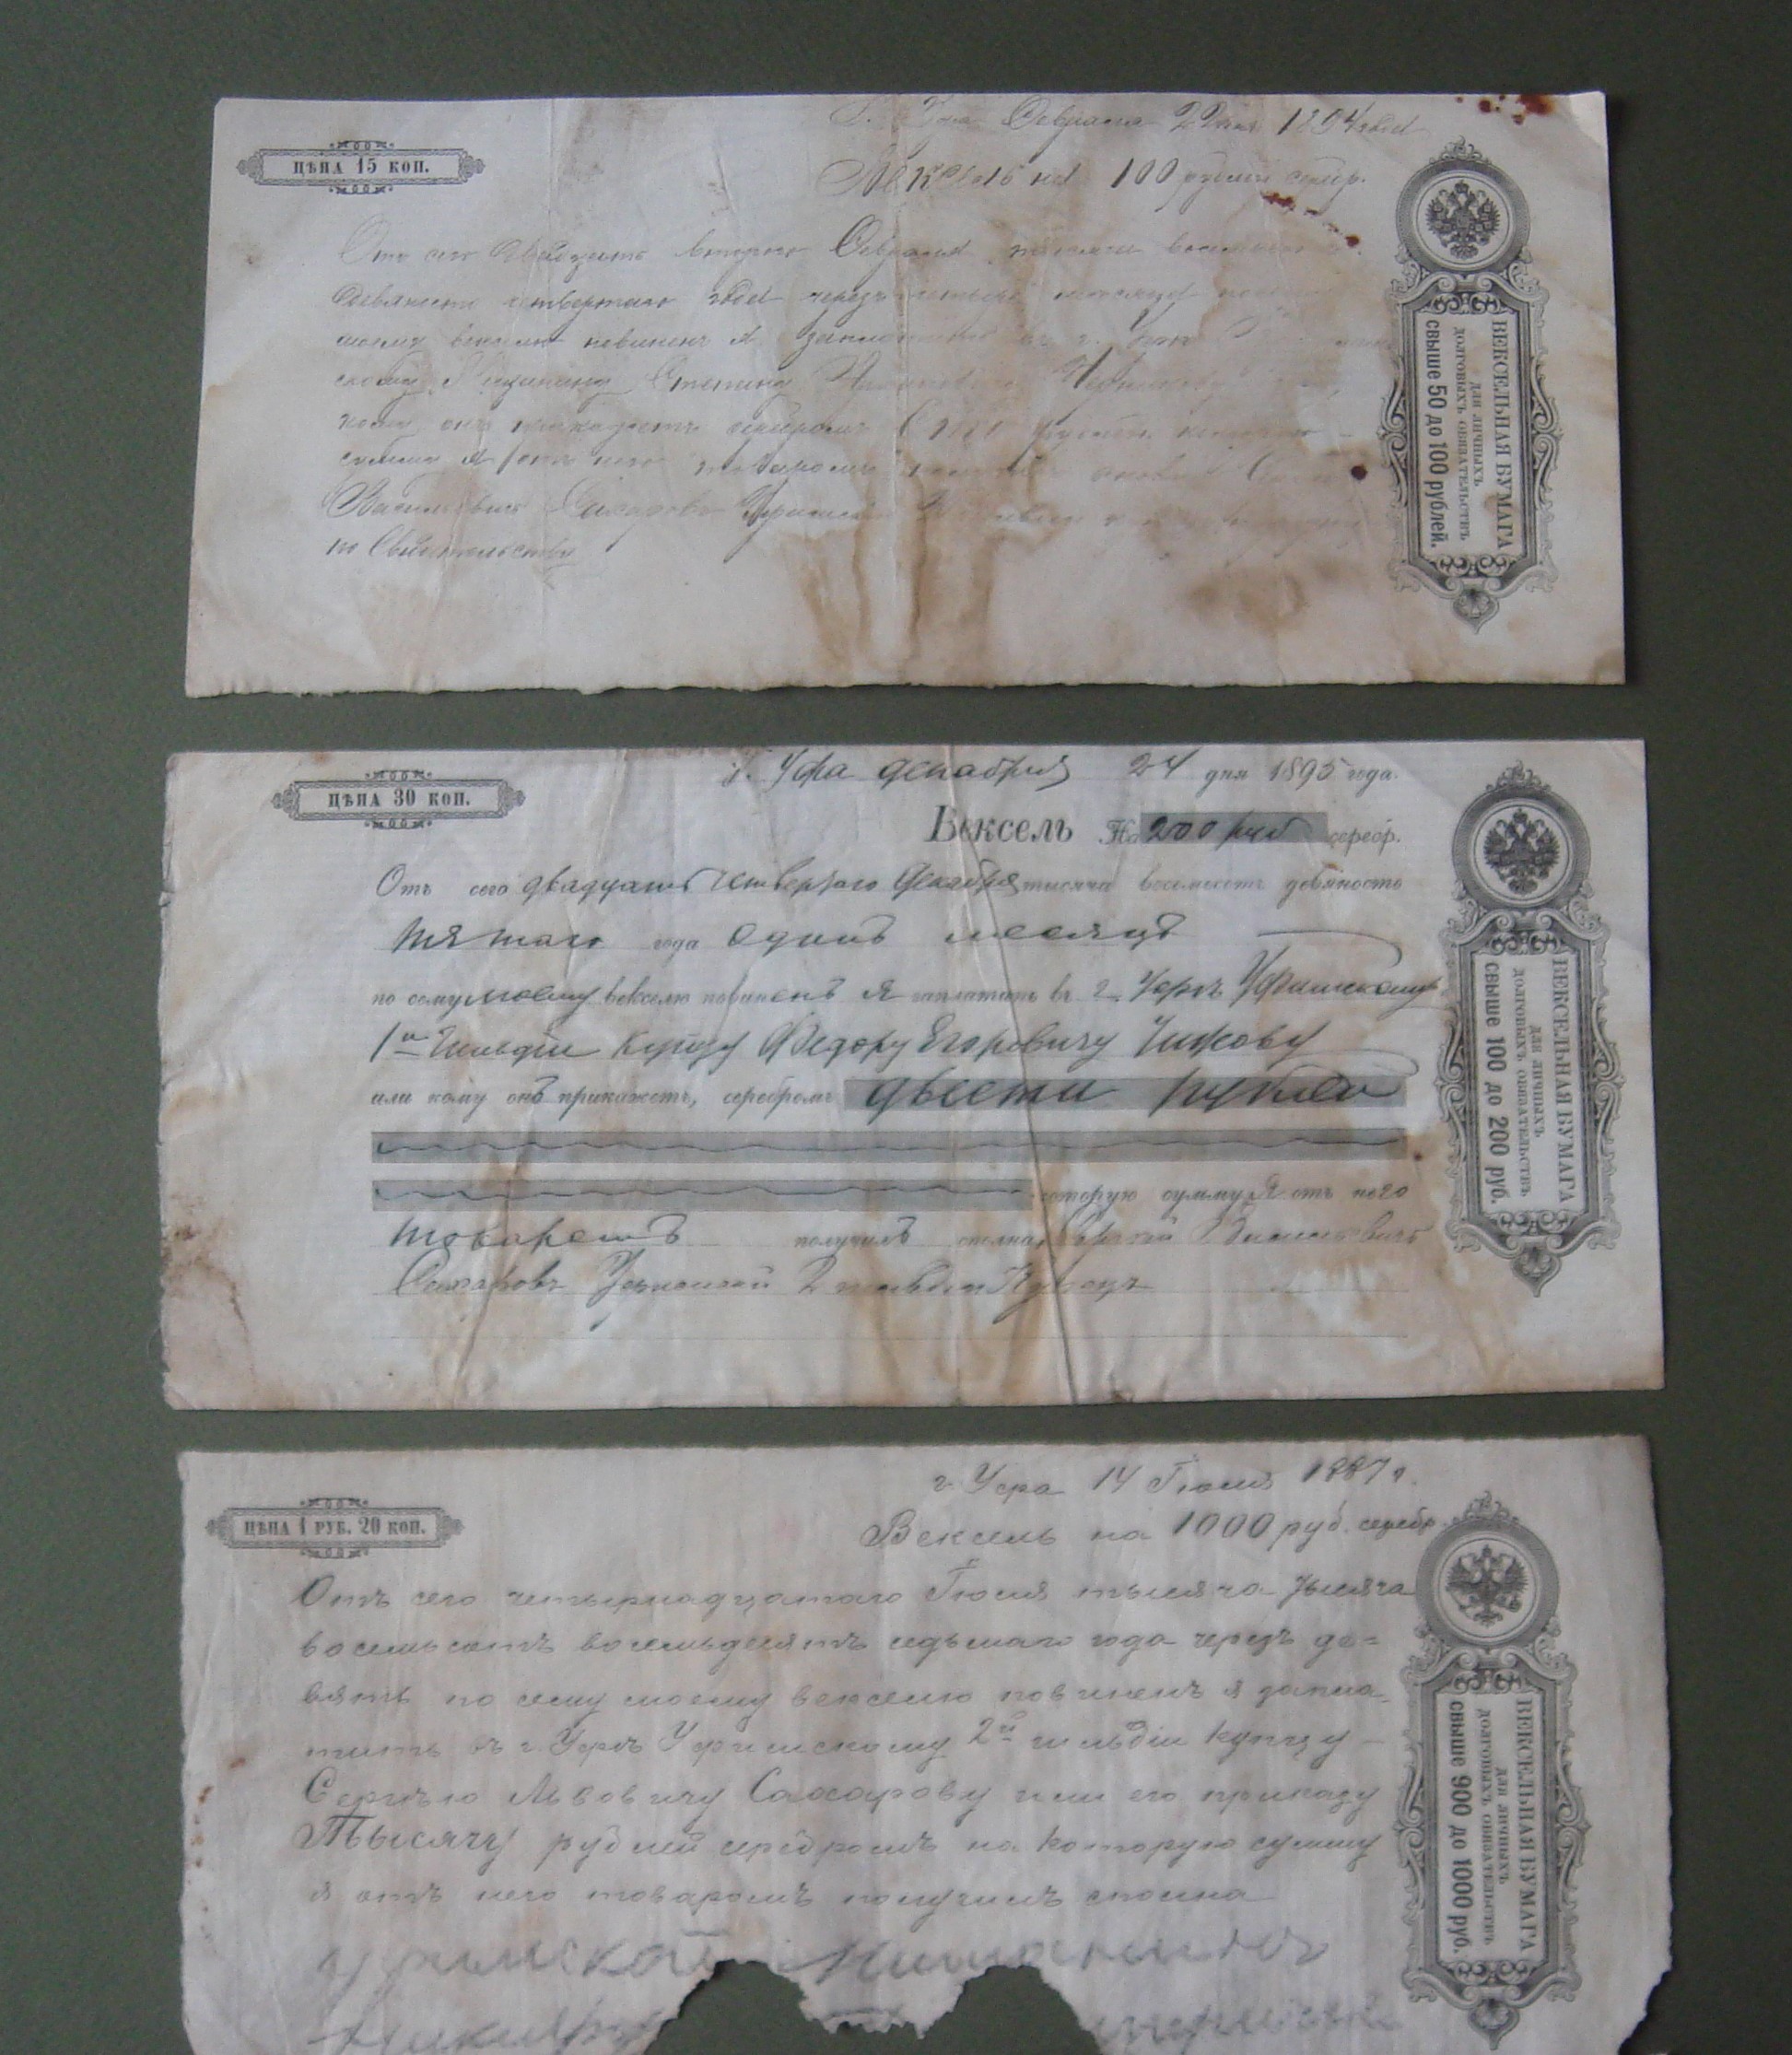 ЦѢНА 15 КОП.
Февраля 22 дня 1894 года
Вексель на 100 рублей серебр.
Отъ сего двадцать второго Февраля тысяча восемьсотъ
девяносто четвертаго года черезъ четыре месяца
моему векселю повиненъ я заплатить въ г. Уфе
Мещанину Степану
кому онъ прикажетъ серебромъ Сто рублей которую
сумму я отъ него товаромъ
Васильевичъ Сахаровъ Уфимский
по Свидетельству
ВЕКСЕЛЬНАЯ БУМАГА
ДЛЯ ЛИЧНЫХЪ
ДОЛГОВЫХЪ ОБЯЗАТЕЛЬСТВЪ
свыше 50 до 100 рублей.
ЦѢНА 30 КОП.
Г. Уфа декабря 24 дня 1895 года.
Вексель На 200 руб серебр.
Отъ сего двадцать четвертаго Декабря тысяча восемьсотъ девяносто
пятаго года одинъ месяцъ
по сему моему векселю повиненъ я заплатить въ г. Уфѣ Уфимскому
1й Гильдіи купцу Федору Егоровичу Чижову
или кому онъ прикажетъ, серебромъ двести рублей
которую сумму я отъ него
товаромъ получилъ сполна, Сергей Васильевичъ
Сахаровъ Уфимский 2 гильдии Купецъ
ВЕКСЕЛЬНАЯ БУМАГА
ДЛЯ ЛИЧНЫХЪ
ДОЛГОВЫХЪ ОБЯЗАТЕЛЬСТВЪ
свыше 100 до 200 руб.
ЦѢНА 1 РУБ. 20 КОП.
г. Уфа 14 Іюля 1887 г.
Вексель на 1000 руб. серебр.
Отъ сего четырнадцатаго Іюля тысяча тысяча
восемьсотъ восемьдесятъ седьмаго года черезъ де=
вять по сему моему векселю повиненъ я запла
тить въ г. Уфѣ Уфимскому 2й гильдіи купцу
Сергѣю Львовичу Сахарову или его приказу
Тысячу рублей серебромъ на которую сумму
я отъ него товаромъ получилъ сполна
Уфимской Мещанинъ
ВЕКСЕЛЬНАЯ БУМАГА
ДЛЯ ЛИЧНЫХЪ
ДОЛГОВЫХЪ ОБЯЗАТЕЛЬСТВЪ
свыше 900 до 1000 руб.